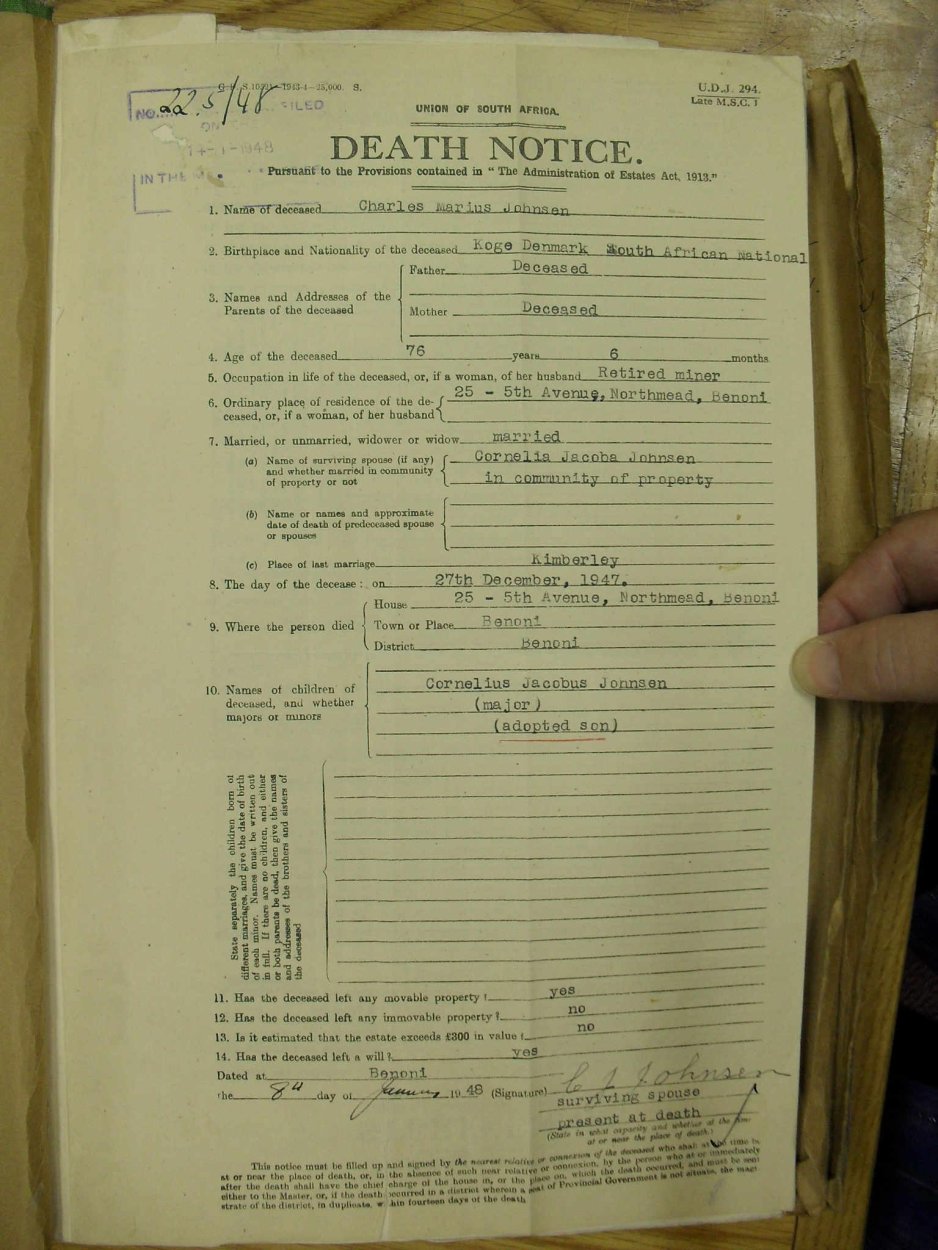 G.P. S. 1943-4—25,000. S.
U.D.J. 294.
Late M.S.C. 1
NO. 225/48 FILED
ON
14-1-1948
IN THE M
UNION OF SOUTH AFRICA.
DEATH NOTICE.
Pursuant to the Provisions contained in "The Administration of Estates Act, 1913."
1. Name of deceased Charles Marius Johnsen
2. Birthplace and Nationality of the deceased Koge Denmark South African National
3. Names and Addresses of the Parents of the deceased
Father Deceased
Mother Deceased
4. Age of the deceased 76 years 6 months
5. Occupation in life of the deceased, or, if a woman, of her husband Retired miner
6. Ordinary place of residence of the de- 25 - 5th Avenue, Northmead, Benoni
ceased, or, if a woman, of her husband
7. Married, or unmarried, widower or widow married
(a) Name of surviving spouse (if any) Cornelia Jacoba Johnsen
and whether married in community in community of property
of property or not
(b) Name or names and approximate
date of death of predeceased spouse
or spouses
(c) Place of last marriage Kimberley
8. The day of the decease: on 27th December, 1947.
9. Where the person died
House 25 - 5th Avenue, Northmead, Benoni
Town or Place Benoni
District Benoni
10. Names of children of Cornelius Jacobus Johnsen
deceased, and whether (major)
majors or minors (adopted son)
State separately the children born of
different marriages, and give the date of birth
of each minor. Names must be written out
in full. If there are no children, and either
or both parents be dead, then give the names
and addresses of the brothers and sisters of
the deceased
11. Has the deceased left any movable property? yes
12. Has the deceased left any immovable property? no
13. Is it estimated that the estate exceeds £300 in value? no
14. Has the deceased left a will? yes
Dated at Benoni
the 8th day of January 1948 (Signature) C J Johnsen
surviving spouse
present at death
(State in what capacity and whether at the time
at or near the place of death.)
This notice must be filled up and signed by the nearest relative or connexion of the deceased who shall at the time be
at or near the place of death, or, in the absence of such near relative or connexion, by the person who at or immediately
after the death shall have the chief charge of the house in, or the place on, which the death occurred, and must be sent
either to the Master, or, if the death occurred in a district wherein a seat of Provincial Government is not situate, the magi-
strate of the district, in duplicate, within fourteen days of the death